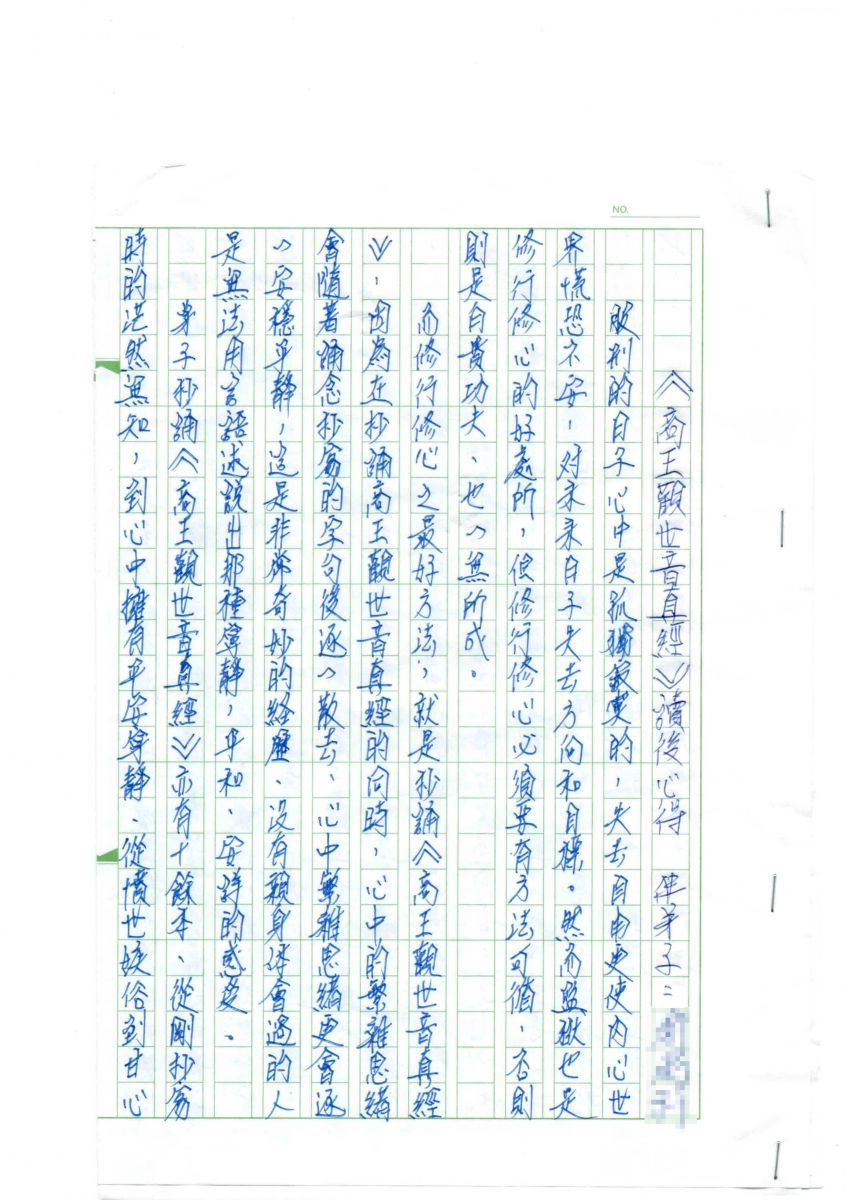 NO.
《高王觀世音真經》讀後心得 伴弟子：
服刑的日子心中是孤獨寂寞的，失去自由更使內心世
界慌恐不安，对未來日子失去方向和目標。然而監獄也是
修行修心的好處所，但修行修心必須要有方法可循，否則
則是白費功夫、也一無所成。
而修行修心之最好方法，就是抄誦《高王觀世音真經
》，因為在抄誦高王觀世音真經的同時，心中的繁雜思緒
會隨著誦念抄寫的字句後逐一散去、心中繁雜思緒更會逐
一安穩平靜，這是非常奇妙的経歷、没有親身体會過的人
是無法用言語述說出那種寧靜，平和、安詳的感受。
弟子抄誦《高王觀世音真經》亦有十餘年、從剛抄寫
時的茫然無知，到心中擁有平安寧靜、從憤世嫉俗到甘心